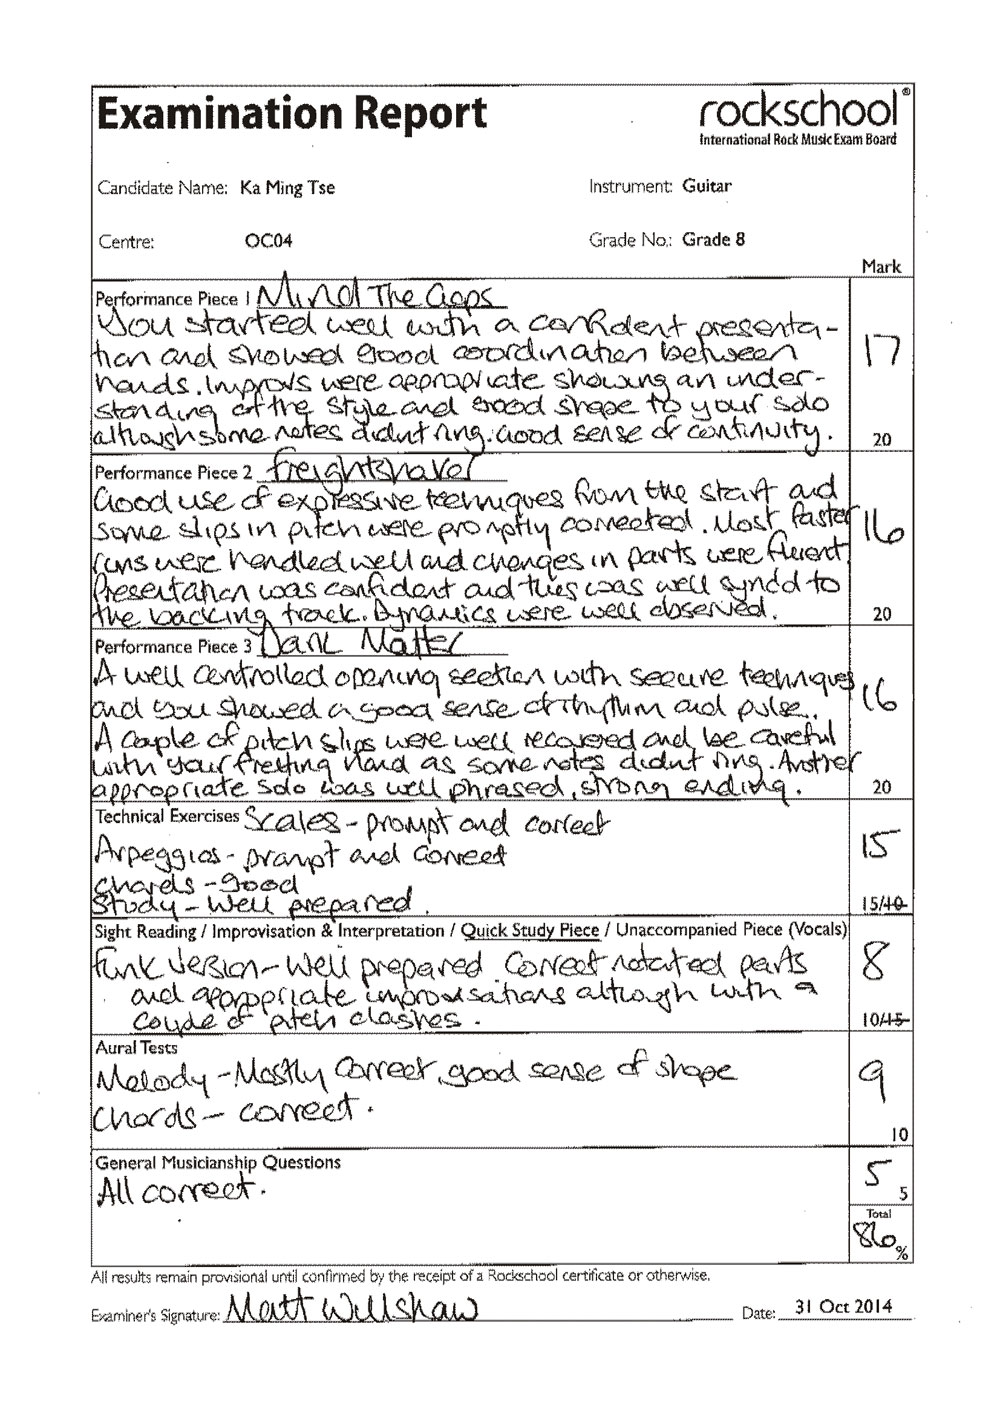 Examination Report
rockschool®
International Rock Music Exam Board
Candidate Name: Ka Ming Tse
Instrument: Guitar
Centre: OC04
Grade No.: Grade 8
Mark
Performance Piece 1 Mind The Gaps
You started well with a confident presenta-
tion and showed good coordination between
hands. Improvs were appropriate showing an under-
standing of the style and good shape to your solo
although some notes didnt ring. Good sense of continuity.
17
20
Performance Piece 2 Freightshaker
Good use of expressive techniques from the start and
some slips in pitch were promptly corrected. Most faster
runs were handled well and changes in parts were fluent
Presentation was confident and this was well syncd to
the backing track. Dynamics were well observed.
16
20
Performance Piece 3 Dark Matter
A well controlled opening section with secure techniques
and you showed a good sense of rhythm and pulse.
A couple of pitch slips were well recovered and be careful
with your fretting hand as some notes didnt ring. Another
appropriate solo was well phrased, strong ending.
16
20
Technical Exercises Scales - prompt and correct
Arpeggios - prompt and correct
Chords - good
Study - Well prepared.
15
15/40
Sight Reading / Improvisation & Interpretation / Quick Study Piece / Unaccompanied Piece (Vocals)
Funk version - Well prepared. Correct notated parts
and appropriate improvisations although with a
couple of pitch clashes.
8
10/15
Aural Tests
Melody - Mostly correct, good sense of shape
Chords - correct.
9
10
General Musicianship Questions
All correct.
5
5
Total
86
%
All results remain provisional until confirmed by the receipt of a Rockschool certificate or otherwise.
Examiner's Signature: Matt Willshaw
Date: 31 Oct 2014